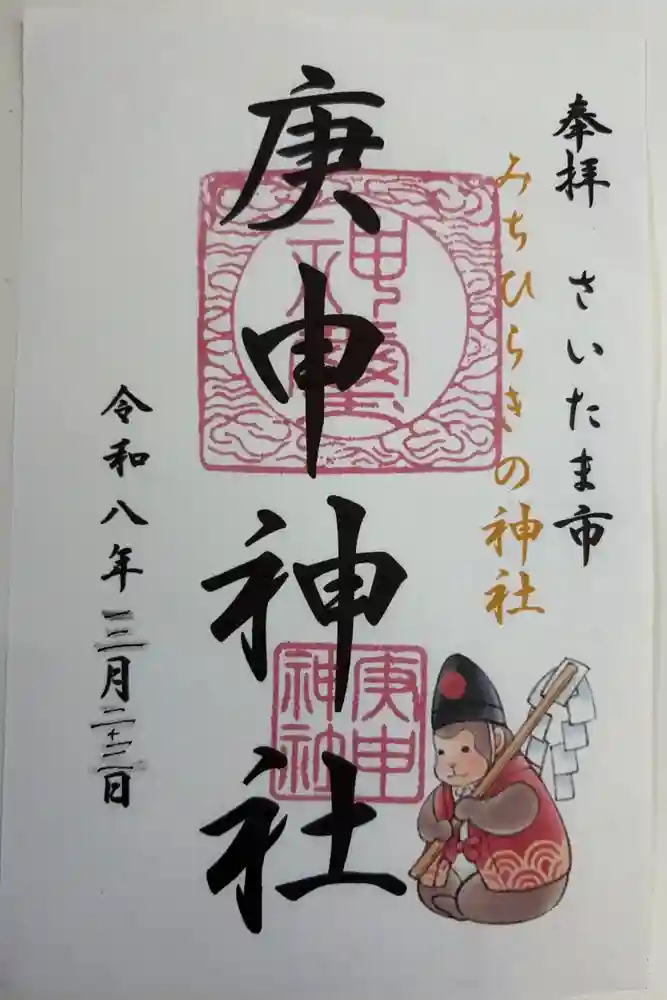 奉拝　さいたま市
みちひらきの神社
庚申神社
神璽
庚申神社
令和八年三月二十二日